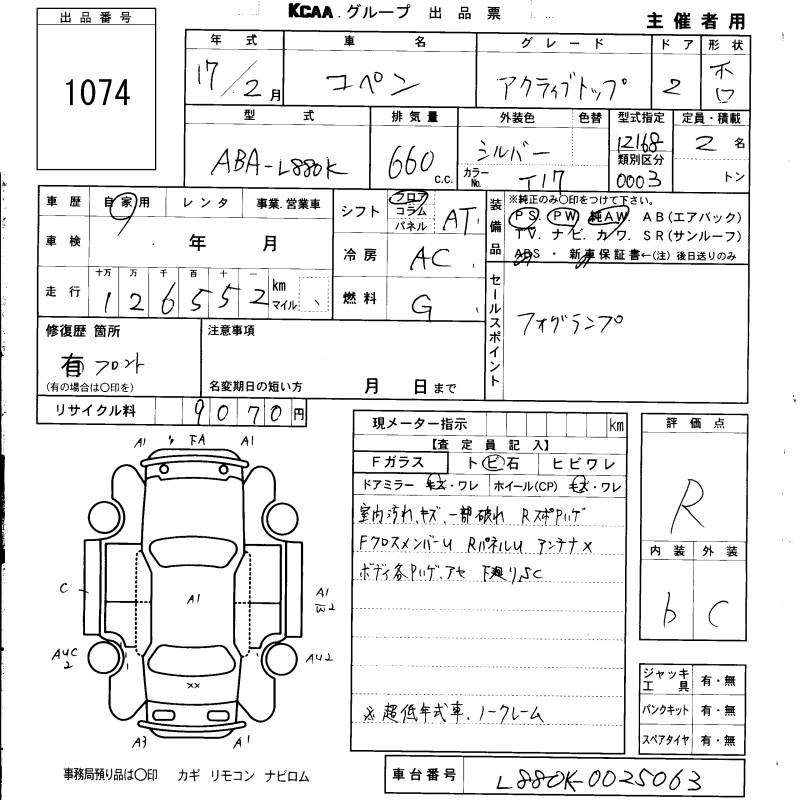 KCAA.グループ 出品票
主催者用
出品番号
1074
年式 車名 グレード ドア 形状
17/2月 コペン アクティブトップ 2 ホロ
型式 排気量 外装色 色替 型式指定 定員・積載
ABA-L880K 660 c.c. シルバー 12168 2 名
カラーNo. T17 類別区分 0003 トン
車歴 自家用 レンタ 事業.営業車
車検 年 月
走行 十万 万 千 百 十 一
1 2 6 5 5 2 km マイル
シフト フロア コラム パネル AT
冷房 AC
燃料 G
装備品 ※純正のみ○印をつけて下さい。
PS. PW. 純AW. AB(エアバック)
TV. ナビ. カワ. SR(サンルーフ)
ABS ・ 新車保証書←(注)後日送りのみ
セールスポイント
フォグランプ
修復歴 箇所
有 フロント
(有の場合は○印を)
注意事項
名変期日の短い方 月 日まで
リサイクル料 9070円
現メーター指示 km
【査定員記入】
Fガラス ト ビ 石 ヒビワレ
ドアミラー キズ・ワレ ホイール(CP) キズ・ワレ
室内汚れ、キズ、一部破れ RスポPハゲ
FクロスメンバーU RパネルU アンテナ×
ボディ各Pハゲ.アセ 下廻りSC
※超低年式車.ノークレーム
評価点
R
内装 外装
b C
ジャッキ 工具 有・無
パンクキット 有・無
スペアタイヤ 有・無
A1 FA A1
C A1 A1 W2
AUC 2 AU2
××
A3 A1
事務局預り品は○印 カギ リモコン ナビロム
車台番号 L880K-0025063